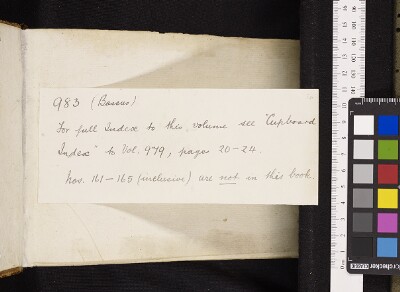 983 (Bassus)
For full Index to this volume see "Cupboard
Index" to Vol. 979, pages 20-24.
Nos. 161-165 (inclusive) are not in this book.